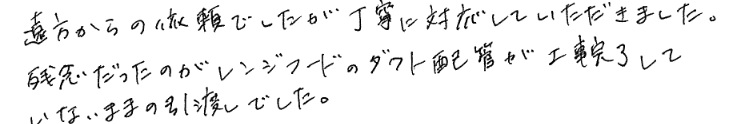 遠方からの依頼でしたが丁寧に対応していただきました。
残念だったのがレンジフードのダクト配管が工事完了して
いないままの引渡しでした。